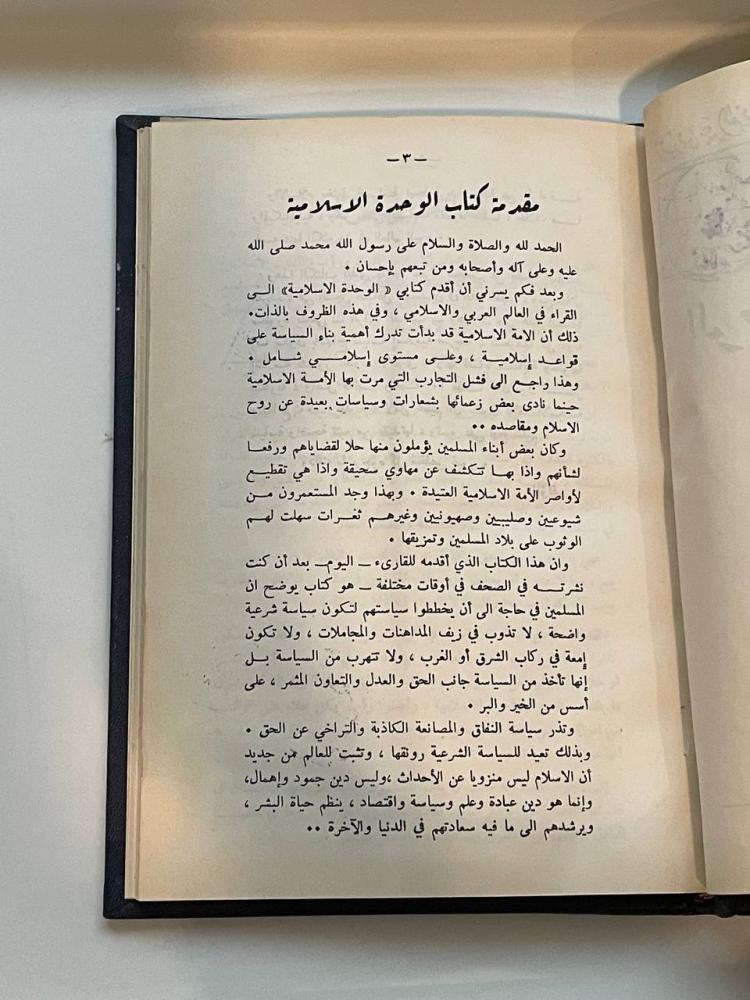 — ٣ —
مقدمة كتاب الوحدة الاسلامية
الحمد لله والصلاة والسلام على رسول الله محمد صلى الله
عليه وعلى آله وأصحابه ومن تبعهم بإحسان .
وبعد فكم يسرني أن أقدم كتابي « الوحدة الاسلامية» الى
القراء في العالم العربي والاسلامي ، وفي هذه الظروف بالذات.
ذلك أن الامة الاسلامية قد بدأت تدرك أهمية بناء السياسة على
قواعد إسلامية ، وعلى مستوى إسلامي شامل .
وهذا راجع الى فشل التجارب التي مرت بها الأمة الاسلامية
حينما نادى بعض زعمائها بشعارات وسياسات بعيدة عن روح
الاسلام ومقاصده ..
وكان بعض أبناء المسلمين يؤملون منها حلا لقضاياهم ورفعا
لشأنهم واذا بها تتكشف عن مهاوي سحيقة واذا هي تقطيع
لأواصر الأمة الاسلامية العتيدة . وبهذا وجد المستعمرون من
شيوعيين وصليبيين وصهيونيين وغيرهم ثغرات سهلت لهم
الوثوب على بلاد المسلمين وتمزيقها .
وان هذا الكتاب الذي أقدمه للقارىء — اليوم — بعد أن كنت
نشرته في الصحف في أوقات مختلفة — هو كتاب يوضح ان
المسلمين في حاجة الى أن يخططوا سياستهم لتكون سياسة شرعية
واضحة ، لا تذوب في زيف المداهنات والمجاملات ، ولا تكون
إمعة في ركاب الشرق أو الغرب ، ولا تتهرب من السياسة بل
إنها تأخذ من السياسة جانب الحق والعدل والتعاون المثمر ، على
أسس من الخير والبر .
وتذر سياسة النفاق والمصانعة الكاذبة والتراخي عن الحق .
وبذلك تعيد للسياسة الشرعية رونقها ، وتثبت للعالم من جديد
أن الاسلام ليس منزويا عن الأحداث ،وليس دين جمود وإهمال،
وإنما هو دين عبادة وعلم وسياسة واقتصاد ، ينظم حياة البشر ،
ويرشدهم الى ما فيه سعادتهم في الدنيا والآخرة ..